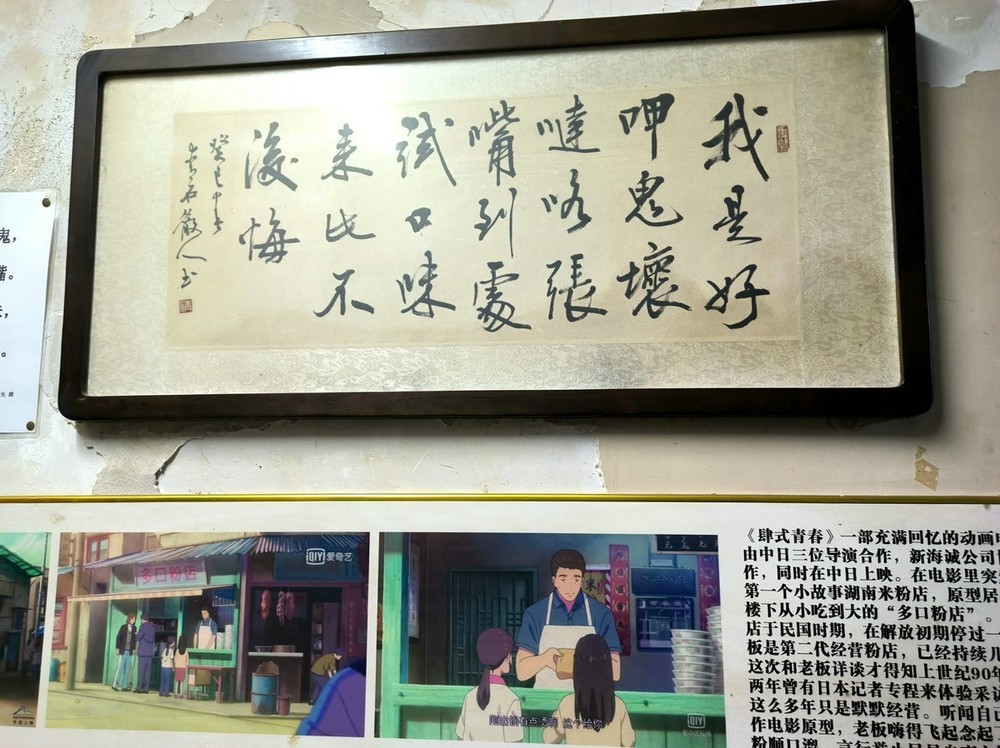 我是好
呷鬼壞
噠咯張
嘴到處
試口味
来此不
後悔
癸巳
人书
鬼，
多口粉店
iQIYI 爱奇艺
这个给你
iQIYI
《肆式青春》一部充满回忆的动画电
由中日三位导演合作，新海诚公司
作，同时在中日上映。在电影里突
第一个小故事湖南米粉店，原型居
楼下从小吃到大的“多口粉店”。
店于民国时期，在解放初期停过一
板是第二代经营粉店，已经持续几
这次和老板详谈才得知上世纪90年
两年曾有日本记者专程来体验采访
这么多年只是默默经营。听闻自己
作电影原型，老板嗨得飞起念起
粉顺口溜